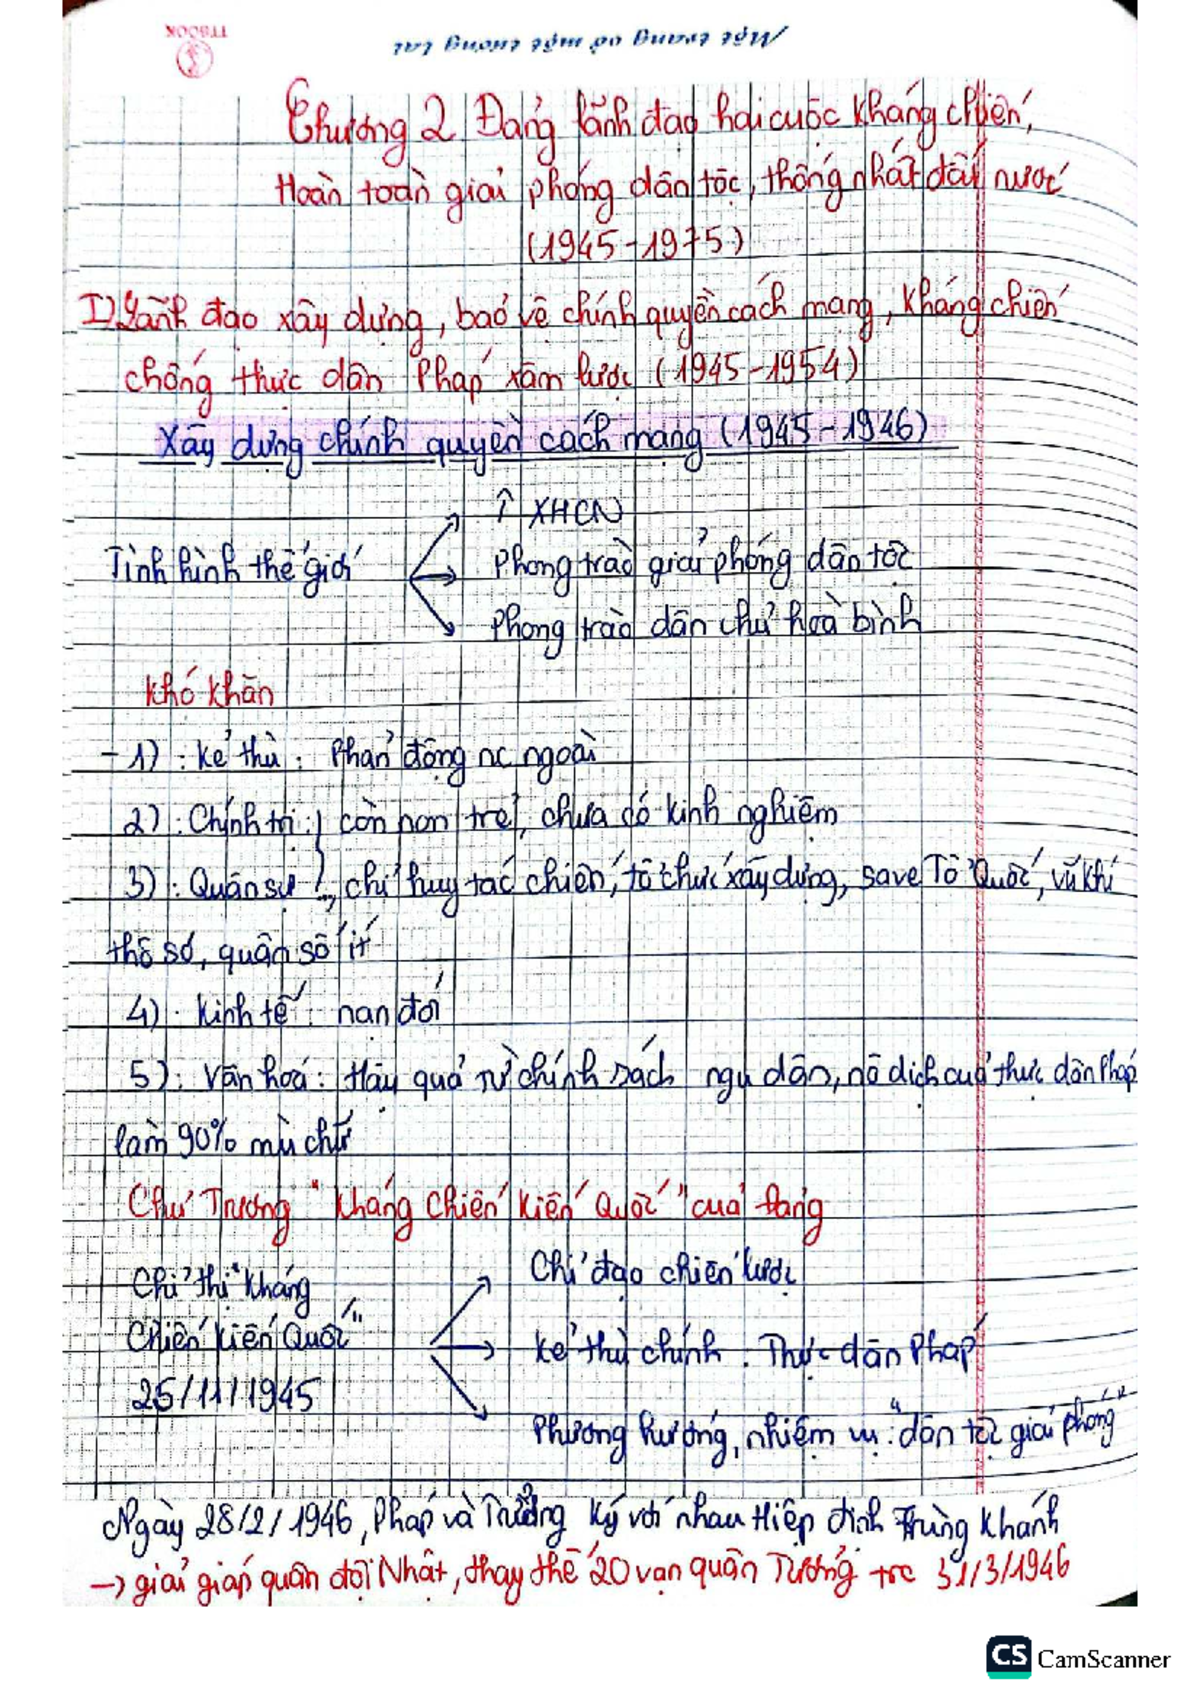 TTBOOK
Chương 2 Đảng lãnh đạo hai cuộc kháng chiến,
Hoàn toàn giải phóng dân tộc, thống nhất đất nước
(1945-1975)
I) Lãnh đạo xây dựng, bảo vệ chính quyền cách mạng, kháng chiến
chống thực dân Pháp xâm lược (1945-1954)
Xây dựng chính quyền cách mạng (1945-1946)
↑ XHCN
Tình hình thế giới
Phong trào giải phóng dân tộc
Phong trào dân chủ hoà bình
Khó khăn
- 1) : Kẻ thù : Phản động nc ngoài
2) : Chính trị : còn non trẻ, chưa có kinh nghiệm
3) : Quân sự : chỉ huy tác chiến, tổ chức xây dựng, save Tổ Quốc, vũ khí
thô sơ, quân số ít
4) : Kinh tế : nạn đói
5) : Văn hoá : Hậu quả từ chính sách ngu dân, nô dịch của thực dân Pháp
làm 90% mù chữ
Chủ Trương "Kháng Chiến Kiến Quốc" của Đảng
Chỉ thị "Kháng
Chiến Kiến Quốc"
25/11/1945
Chỉ đạo chiến lược
Kẻ thù chính : Thực dân Pháp
Phương hướng, nhiệm vụ : "dân tộc giải phóng"
Ngày 28/2/1946, Pháp và Tưởng ký với nhau Hiệp định Trùng Khánh
→ giải giáp quân đội Nhật, thay thế 20 vạn quân Tưởng trc 31/3/1946
CS CamScanner